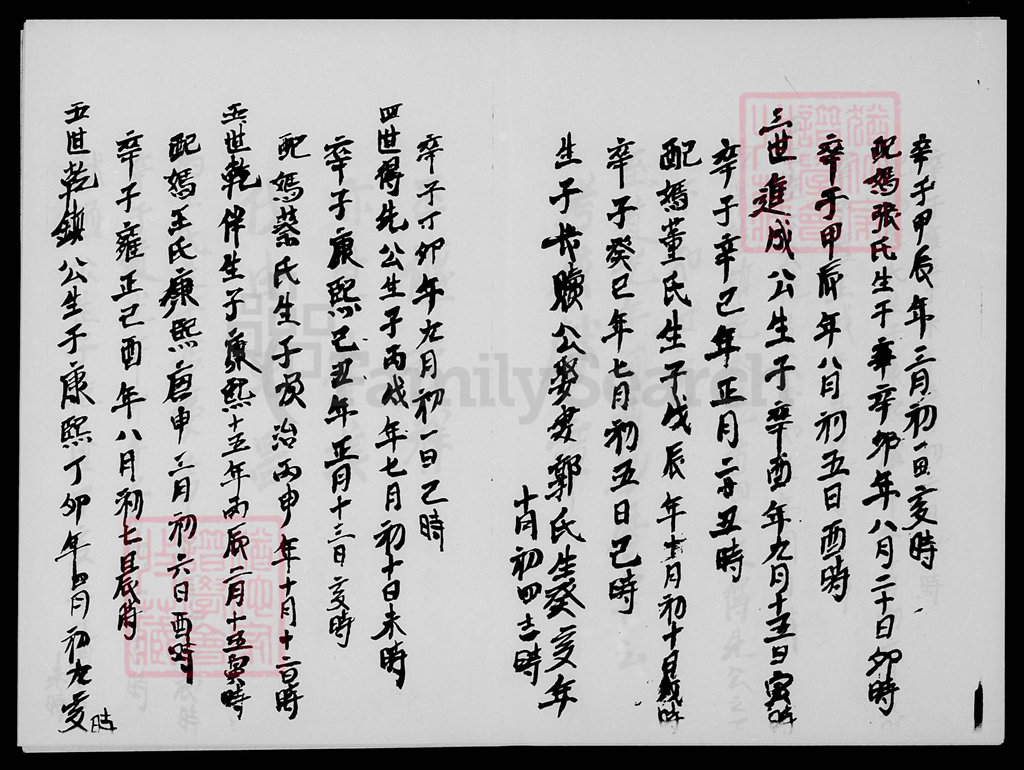 卒于甲辰年二月初一日亥時
配媽張氏生于辛卯年八月二十日卯時
卒于甲辰年八月初五日酉時
三世進成公生于辛酉年九月十五日寅時
卒于辛己年正月二丑時
配媽董氏生于戊辰年十二月初十日戌時
卒于癸巳年七月初五日己時
生子長贖公娶妻郭氏生癸亥年
十月初四吉時
卒于丁卯年九月初一日己時
四世得先公生于丙戌年七月初十日未時
卒于康熙己丑年正月十三日亥時
配媽蔡氏生于順治丙申年十月十二日時
五世乾伴生于康熙十五年丙辰二月十五寅時
配媽王氏康熙庚申三月初六日酉時
卒于雍正己酉年八月初七日辰時
五世乾鎮公生于康熙丁卯年四月初九亥時
FamilySearch